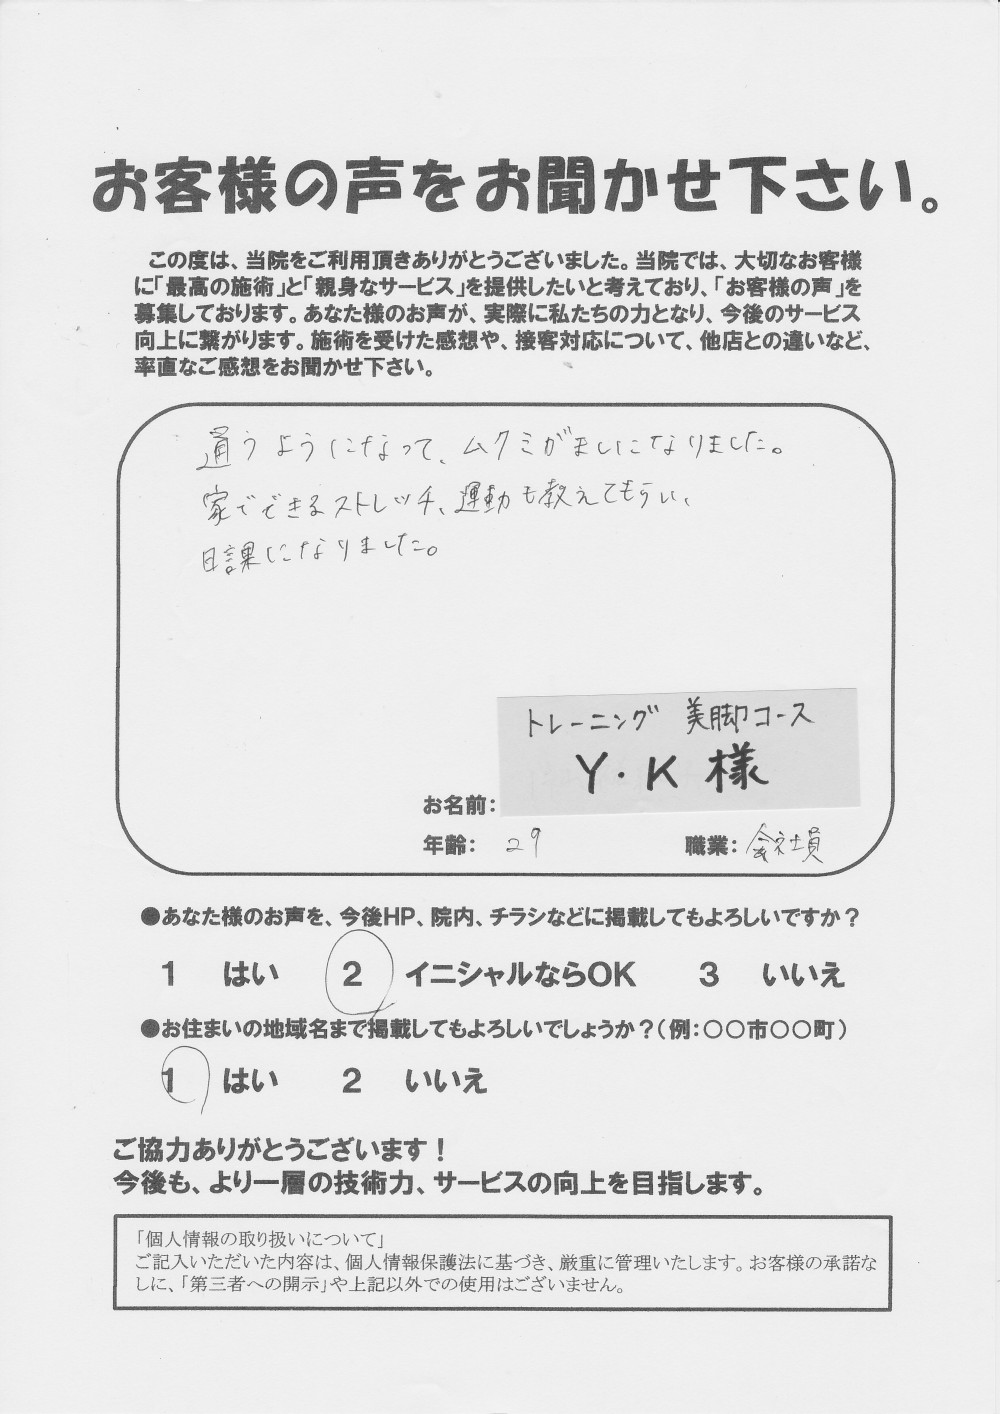 お客様の声をお聞かせ下さい。
この度は、当院をご利用頂きありがとうございました。当院では、大切なお客様
に「最高の施術」と「親身なサービス」を提供したいと考えており、「お客様の声」を
募集しております。あなた様のお声が、実際に私たちの力となり、今後のサービス
向上に繋がります。施術を受けた感想や、接客対応について、他店との違いなど、
率直なご感想をお聞かせ下さい。
通うようになって、ムクミがましになりました。
家でできるストレッチ、運動も教えてもらい、
日課になりました。
トレーニング 美脚コース
お名前: Y・K 様
年齢: 29 職業: 会社員
●あなた様のお声を、今後HP、院内、チラシなどに掲載してもよろしいですか？
1 はい 2 イニシャルならOK 3 いいえ
●お住まいの地域名まで掲載してもよろしいでしょうか？(例:〇〇市〇〇町)
1 はい 2 いいえ
ご協力ありがとうございます！
今後も、より一層の技術力、サービスの向上を目指します。
「個人情報の取り扱いについて」
ご記入いただいた内容は、個人情報保護法に基づき、厳重に管理いたします。お客様の承諾な
しに、「第三者への開示」や上記以外での使用はございません。